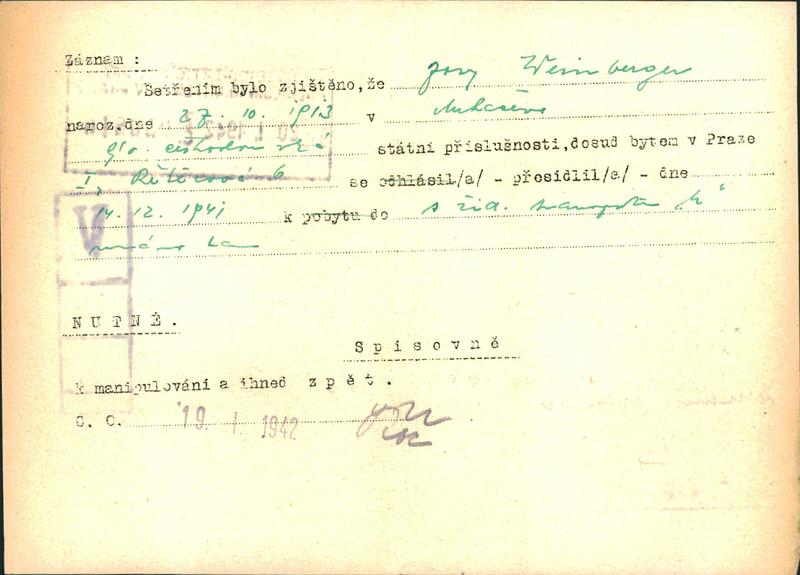 Záznam :
Šetřením bylo zjištěno, že Josef Weinberger
naroz. dne 27. 10. 1913 v Mukačevo
státní příslušnosti, dosud bytem v Praze
I, Řetězová 6 se odhlásil/a/ - přesídlil/a/ - dne
14. 12. 1941 k pobytu do s žid. transportem "M"
NUTNÉ.
Spisovně
k manipulování a ihned zpět.
C. C. 19. I. 1942
V